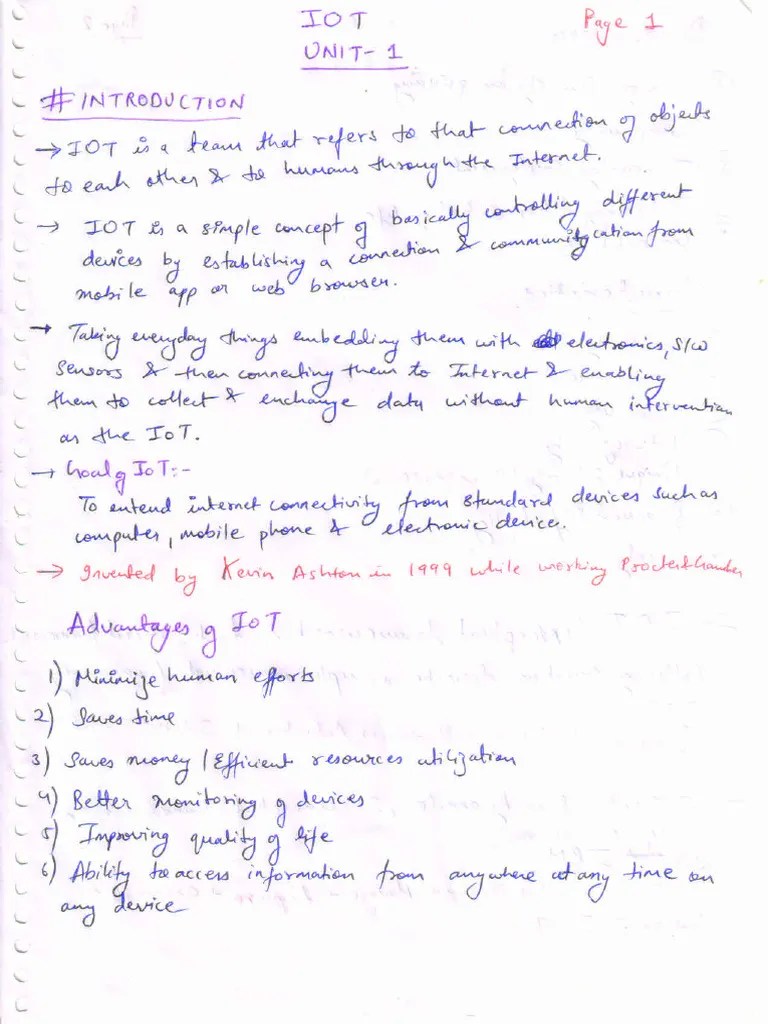 IOT
Page 1
UNIT-1
# INTRODUCTION
→ IOT is a team that refers to that connection of objects
to each other & to humans through the Internet.
→ IOT is a simple concept of basically controlling different
devices by establishing a connection & communication from
mobile app or web browser.
→ Taking everyday things embedding them with electronics, S/W
sensors & then connecting them to Internet & enabling
them to collect & exchange data without human intervention
as the IoT.
→ Goal of IoT:-
To extend internet connectivity from standard devices such as
computer, mobile phone & electronic device.
→ Invented by Kevin Ashton in 1999 while working Procter & Gamber
Advantages of IOT
1) Minimize human efforts
2) Saves time
3) Saves money / Efficient resources utilization
4) Better monitoring of devices
5) Improving quality of life
6) Ability to access information from anywhere at any time on
any device